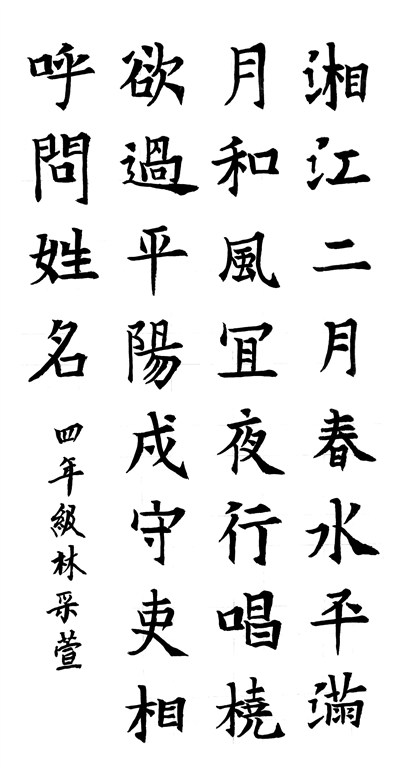 湘江二月春水平滿
月和風冝夜行唱橈
欲過平陽戍守吏相
呼問姓名
四年級林采萱